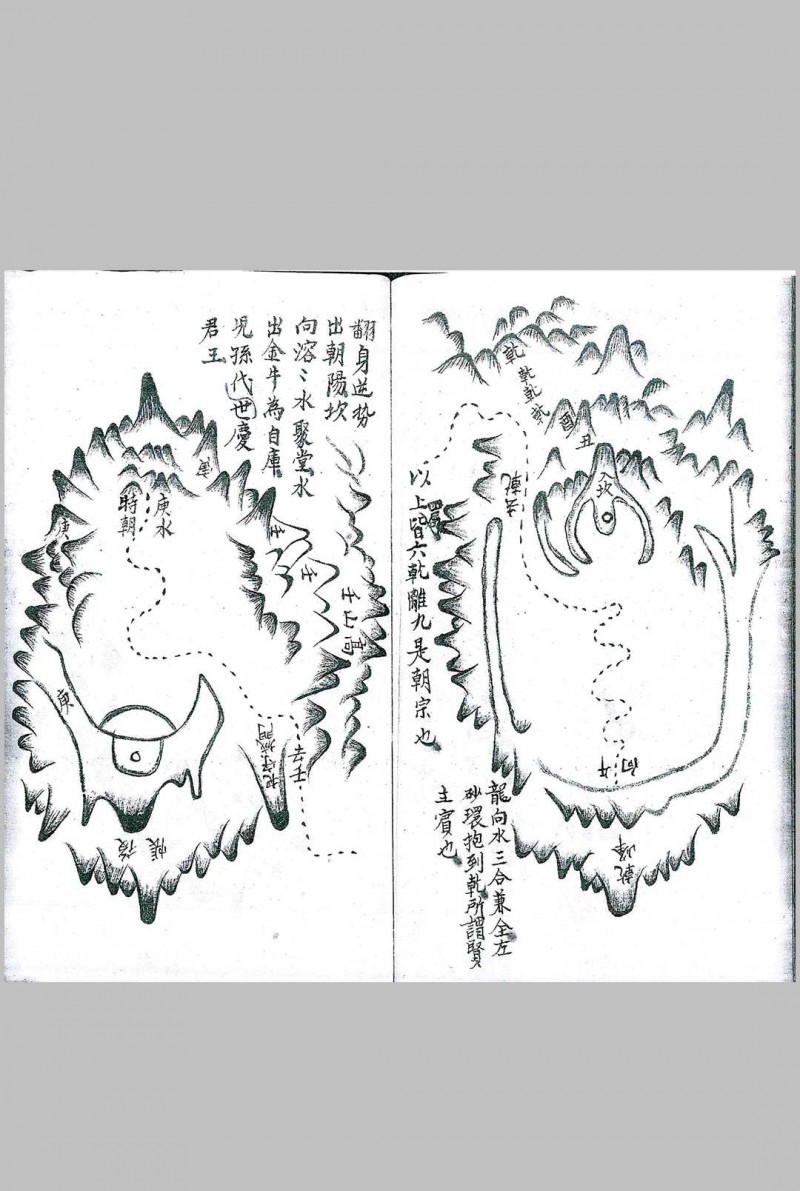 乾
乾
乾
乾
酉
丑
入坎
以上皆六乾離九是朝宗也
向午
乾峰
龍向水三合兼全左
砂環抱到乾所謂賢
主賓也
翻身逆势
出朝陽坎
向溶〻水聚堂水
出金牛為自庫
児孫代世慶
君王
庚水
時朝
庚
庚
壬
壬
壬山高
壬辛
後帳